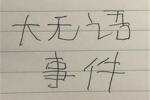 大无语
事件